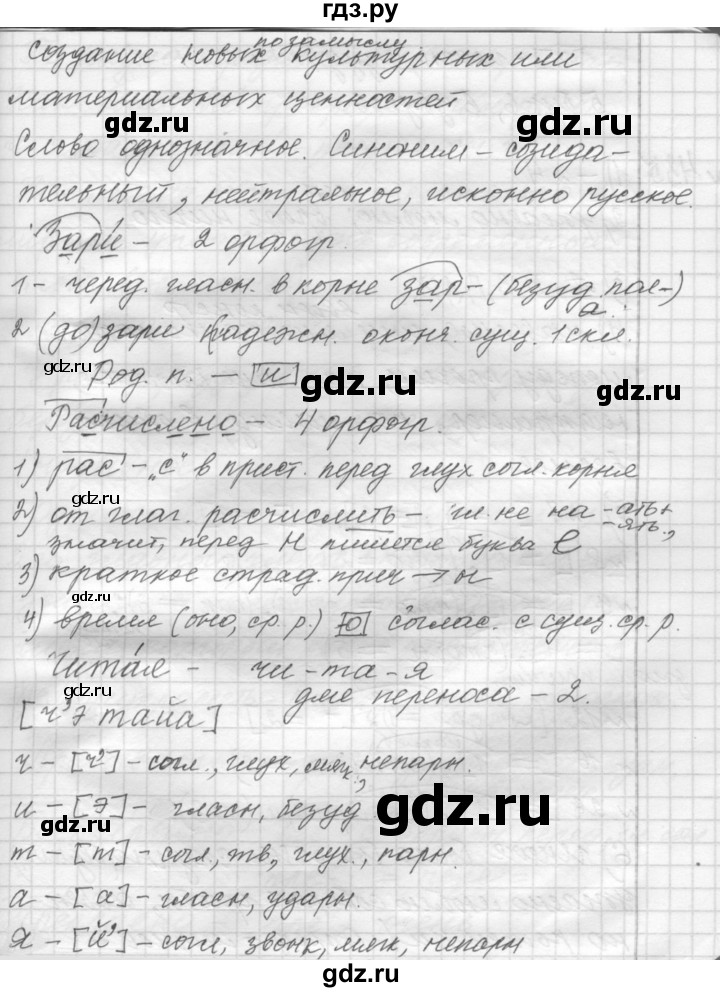 гдз.ру
по замыслу
создание новых культурных или
материальных ценностей
Слово однозначное. Синоним – созида-
тельный, нейтральное, исконно русское.
Зари – 2 орфогр.
1 – черед. гласн. в корне зар- (безуд пол-)
а.
2 (до) зари падежн. оконч. сущ. 1 скл.
Род. п. – и
Расчислено – 4 орфогр.
1) рас – "с" в прист. перед глух согл. корня
2) от глаг. расчислить – гл. не на -ать,
-ять,
значит, перед Н пишется буква е
3) краткое страд. прич → н
4) время (оно, ср. р.) о соглас. с сущ. ср. р.
Читáя – чи-та-я
для переноса – 2.
[ч'э тайа]
ч – [ч'] – согл., глух, мягк., непарн.
и – [э] – гласн, безуд
т – [т] – согл, тв, глух., парн.
а – [а] – гласн, ударн.
я – [й'] – согл, звонк, мягк, непарн
gdz.ru
gdz.ru
gdz.ru
gdz.ru
gdz.ru
gdz.ru
gdz.ru
gdz.ru
gdz.ru
gdz.ru
gdz.ru
gdz.ru
gdz.ru